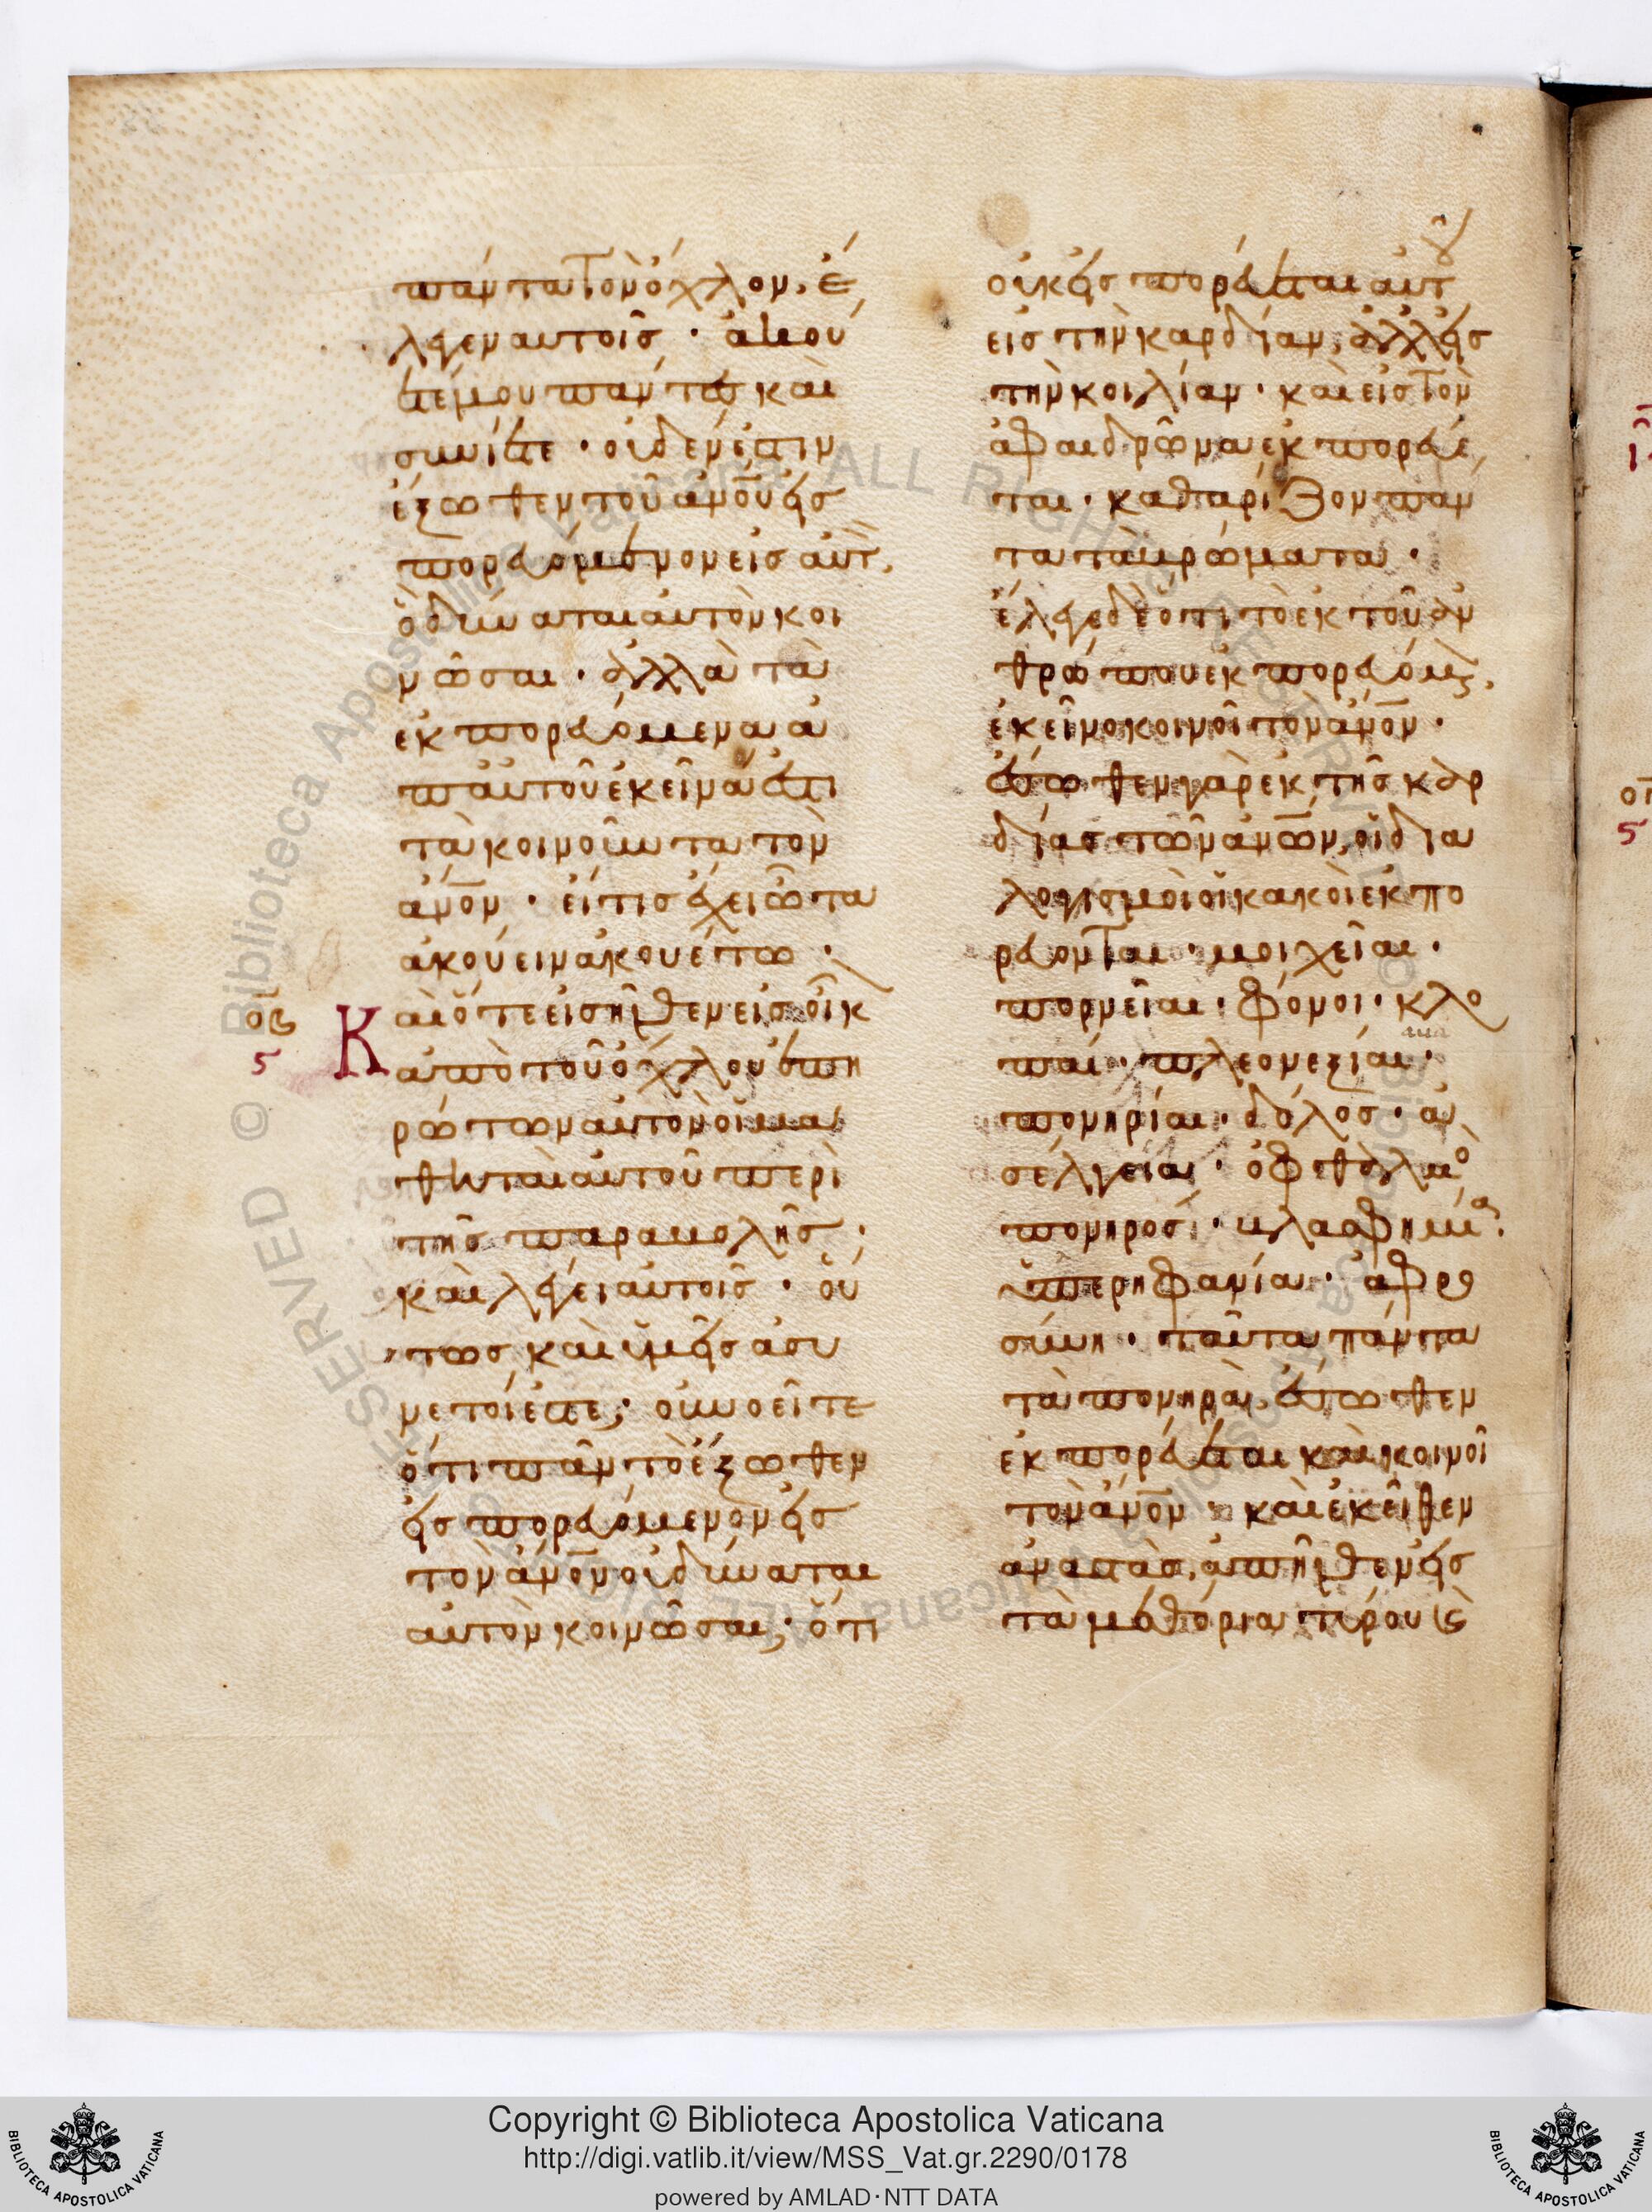 πάντα τὸν ὄχλον, ἔ
λεγεν αὐτοῖς · ἀκού
ετέ μου πάντες καὶ
συνίετε · οὐδέν ἐστιν
ἔξωθεν τοῦ ἀνου εἰσ
πορευόμενον εἰς αὐτ,
ὃ δύναται αὐτὸν κοι
νῶσαι · ἀλλὰ τὰ
ἐκπορευόμενα ἀ
π αὐτοῦ ἐκεῖνά ἐστι
τὰ κοινοῦντα τὸν
ἄνον · εἴ τις ἔχει ὦτα
ἀκούειν ἀκουέτω ·
οβ
ς
Καὶ ὅτε εἰσῆλθεν εἰς οἶκ
ἀπὸ τοῦ ὄχλου ἐπη
ρώτων αὐτὸν οἱ μα
θηταὶ αὐτοῦ περὶ
τῆς παραβολῆς ·
καὶ λέγει αὐτοῖς · οὕ
τως καὶ ὑμεῖς ἀσύ
νετοί ἐστε; οὐ νοεῖτε
ὅτι πᾶν τὸ ἔξωθεν
εἰσπορευόμενον εἰς
τὸν ἄνον οὐ δύναται
αὐτὸν κοινῶσαι, ὅτι
οὐκ εἰσπορεύεται αὐτου
εἰς τὴν καρδίαν, ἀλλ εἰς
τὴν κοιλίαν · καὶ εἰς τὸν
ἀφαιδρῶνα ἐκπορεύε
ται · καθαρίζον πάν
τα τὰ βρώματα ·
ἔλεγε δὲ ὅτι τὸ ἐκ τοῦ ἀν
θρώπου ἐκπορευόμεν,
ἐκεῖνο κοινοῖ τὸν ἄνον ·
ἔσωθεν γὰρ ἐκ τῆς καρ
δίας τῶν ἀνων, οἱ δια
λογισμοὶ οἱ κακοὶ ἐκπο
ρεύονται · μοιχεῖαι ·
πορνεῖαι · φόνοι · κλο
παί · πλεονεξίαι ·
πονηρίαι · δόλος · ἀ
σέλγεια · ὀφθαλμο
πονηρος · βλασφημια ·
ὑπερηφανία · ἀφρο
σύνη · ταῦτα πάντα
τὰ πονηρὰ, ἔσωθεν
ἐκπορεύεται καὶ κοινοῖ
τὸν ἄνον · καὶ ἐκεῖθεν
ἀναστὰς, ἀπῆλθεν εἰς
τὰ μεθόρια τύρου ϗ
Copyright © Biblioteca Apostolica Vaticana
http://digi.vatlib.it/view/MSS_Vat.gr.2290/0178
powered by AMLAD·NTT DATA
BIBLIOTECA APOSTOLICA VATICANA
BIBLIOTECA APOSTOLICA VATICANA